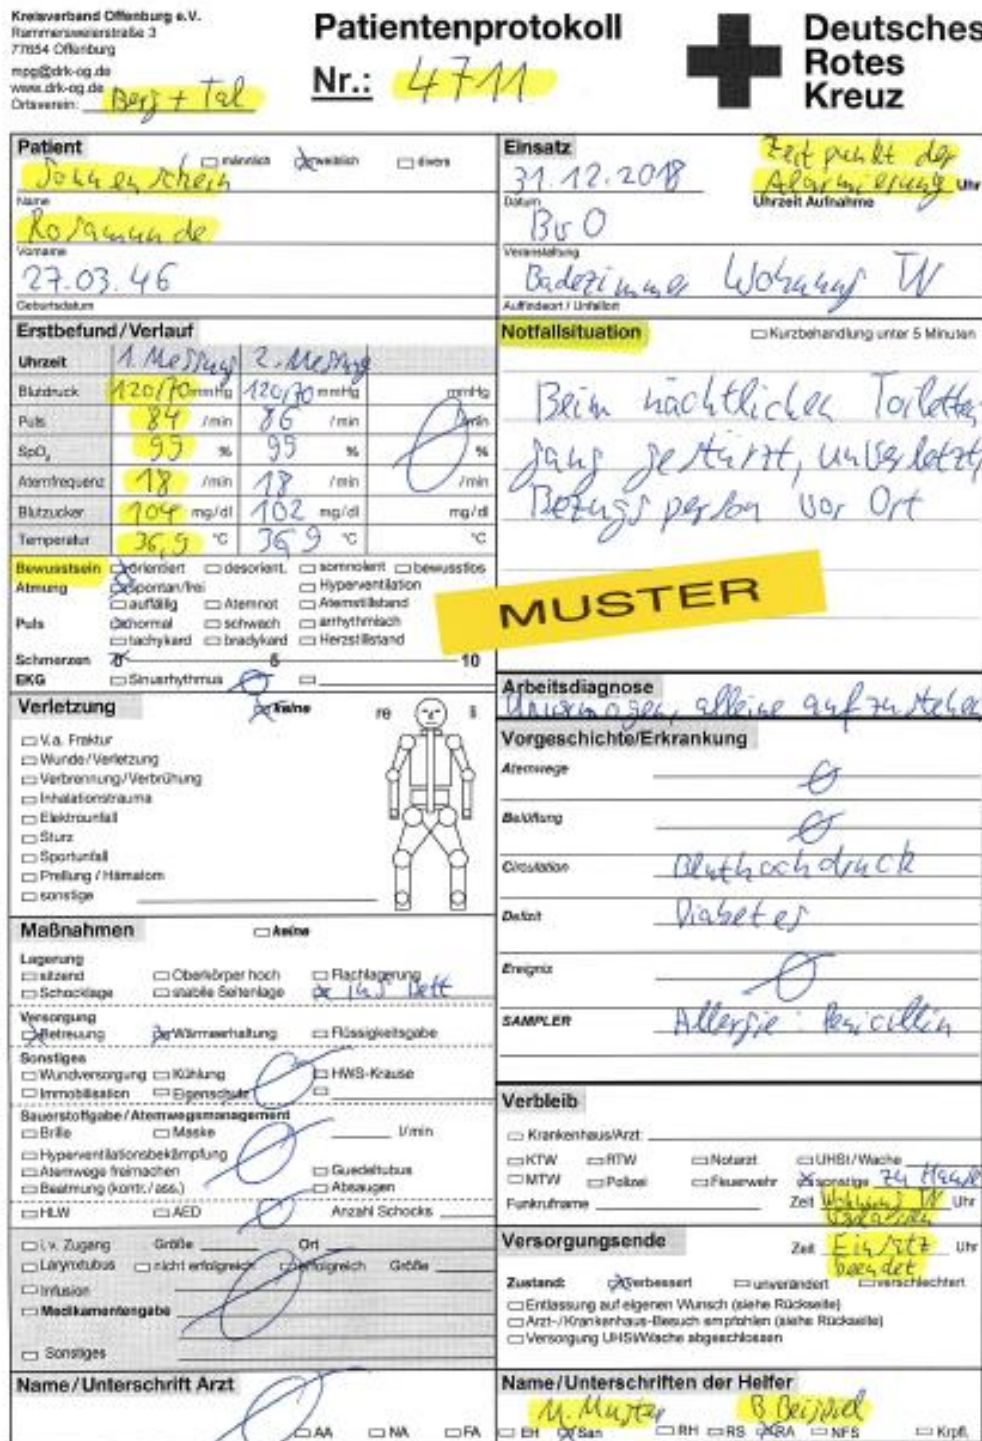 Kreisverband Offenburg e.V.
Rammersweierstraße 3
77654 Offenburg
mpg@drk-og.de
www.drk-og.de
Ortsverein: Berg + Tal
Patientenprotokoll
Nr.: 4711
Deutsches
Rotes
Kreuz
Patient
männlich weiblich divers
Sonnenschein
Name
Rosamunde
Vorname
27.03.46
Geburtsdatum
Einsatz
Zeitpunkt der
31.12.2018 Alarmierung Uhr
Datum Uhrzeit Aufnahme
BvO
Veranstaltung
Badezimmer Wohnung TN
Auffindeort / Unfallort
Erstbefund/Verlauf
Uhrzeit 1. Messung 2. Messung
Blutdruck 120/70 mmHg 120/70 mmHg mmHg
Puls 84 /min 86 /min /min
SpO₂ 99 % 99 % %
Atemfrequenz 18 /min 18 /min /min
Blutzucker 104 mg/dl 102 mg/dl mg/dl
Temperatur 36,9 °C 36,9 °C °C
Bewusstsein orientiert desorient. somnolent bewusstlos
Atmung spontan/frei Hyperventilation
auffällig Atemnot Atemstillstand
Puls normal schwach arrhythmisch
tachykard bradykard Herzstillstand
Schmerzen 0 5 10
EKG Sinusrhythmus
Notfallsituation Kurzbehandlung unter 5 Minuten
Beim nächtlichen Toiletten
gang gestürzt, unverletzt,
Bezugsperson vor Ort
MUSTER
Arbeitsdiagnose
Unvermögen, alleine aufzustehen
Verletzung keine re li
V.a. Fraktur
Wunde/Verletzung
Verbrennung/Verbrühung
Inhalationstrauma
Elektrounfall
Sturz
Sportunfall
Prellung / Hämatom
sonstige
Vorgeschichte/Erkrankung
Atemwege
Belüftung
Circulation Bluthochdruck
Defizit Diabetes
Ereignis
SAMPLER Allergie: Penicillin
Maßnahmen keine
Lagerung
sitzend Oberkörper hoch Flachlagerung
Schocklage stabile Seitenlage ins Bett
Versorgung
Betreuung Wärmeerhaltung Flüssigkeitsgabe
Sonstiges
Wundversorgung Kühlung HWS-Krause
Immobilisation Eigenschutz
Sauerstoffgabe/Atemwegsmanagement
Brille Maske l/min
Hyperventilationsbekämpfung
Atemwege freimachen Guedeltubus
Beatmung (kontr./ass.) Absaugen
HLW AED Anzahl Schocks
i.v. Zugang Größe Ort
Larynxtubus nicht erfolgreich erfolgreich Größe
Infusion
Medikamentengabe
Sonstiges
Verbleib
Krankenhaus/Arzt
KTW RTW Notarzt UHSt/Wache
MTW Polizei Feuerwehr sonstige zu Hause
Funkrufname Zeit Wohnung TN Uhr
verlassen
Versorgungsende Zeit Einsatz Uhr
beendet
Zustand: verbessert unverändert verschlechtert
Entlassung auf eigenen Wunsch (siehe Rückseite)
Arzt-/Krankenhaus-Besuch empfohlen (siehe Rückseite)
Versorgung UHSt/Wache abgeschlossen
Name/Unterschrift Arzt
AA NA FA
Name/Unterschriften der Helfer
M. Muster B. Beispiel
EH San RH RS RA NFS Krpfl.